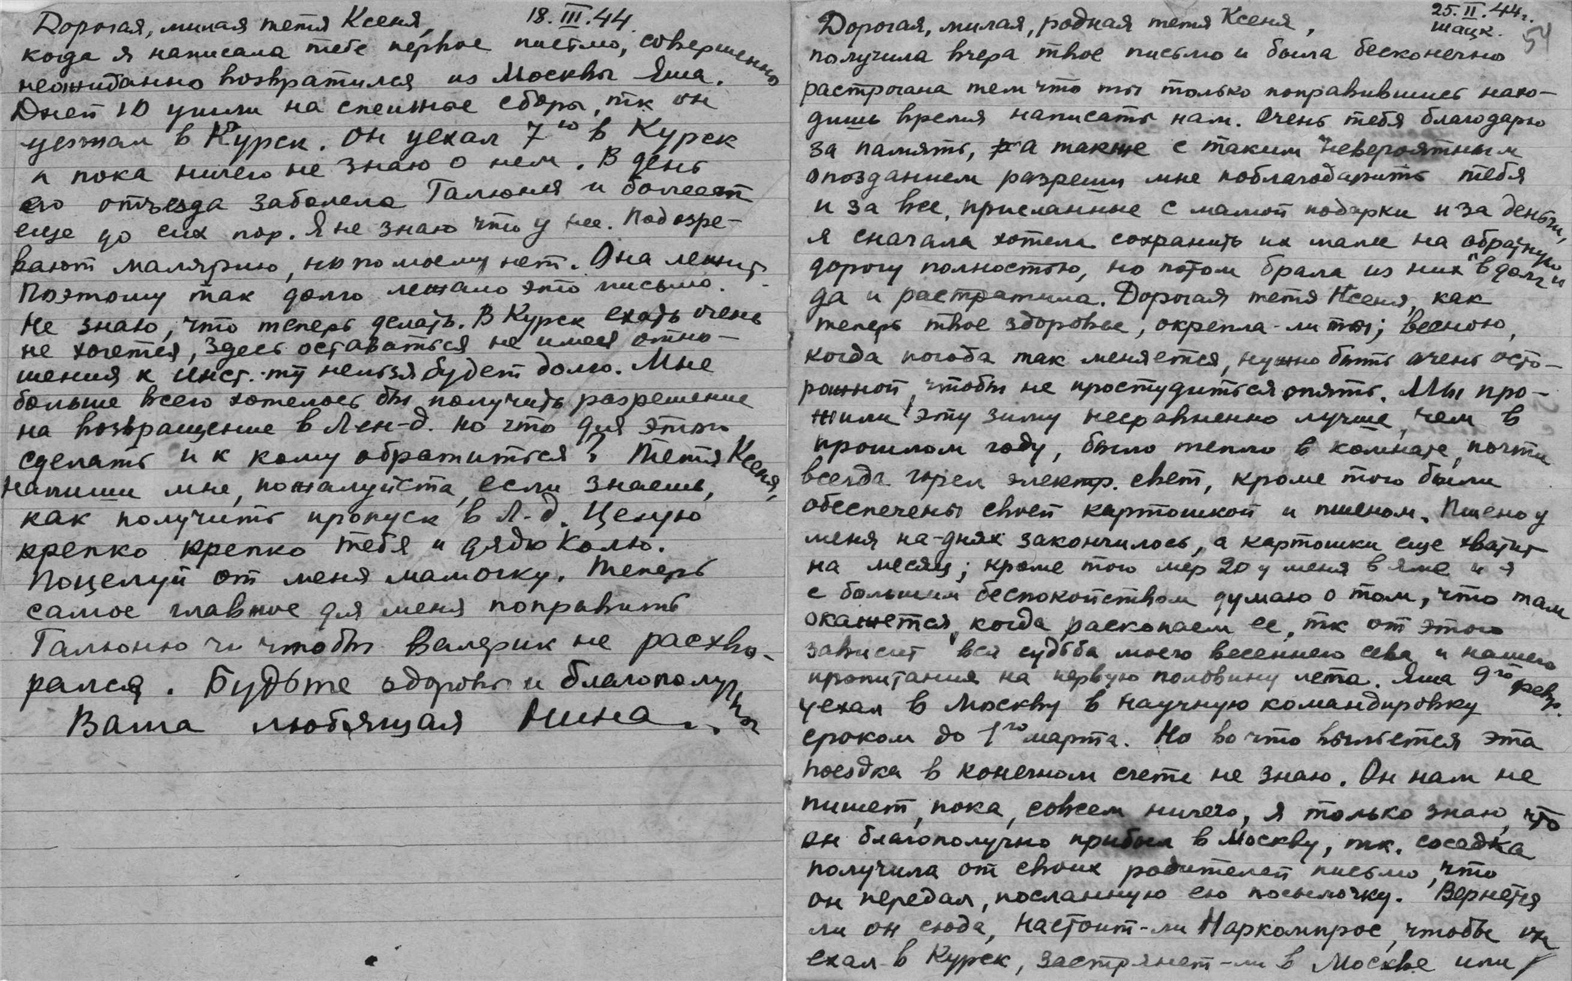 18.III.44.
Дорогая, милая тетя Ксеня,
когда я написала тебе первое письмо, совершенно
неожиданно возвратился из Москвы Яша.
Дней 10 ушли на спешные сборы, тк он
уезжал в Курск. Он уехал 7го в Курск
и пока ничего не знаю о нем. В день
его отъезда заболела Галюня и болеет
еще до сих пор. Я не знаю что у нее. Подозре-
вают малярию, но по моему нет. Она лежит.
Поэтому так долго лежало это письмо.
Не знаю, что теперь делать. В Курск ехать очень
не хочется, здесь оставаться не имея отно-
шения к инст.-ту нельзя будет долго. Мне
больше всего хотелось бы получить разрешение
на возвращение в Лен-д. но что для этого
сделать и к кому обратиться? Тетя Ксеня,
напиши мне, пожалуйста, если знаешь,
как получить пропуск в Л-д. Целую
крепко крепко тебя и дядю Колю.
Поцелуй от меня мамочку. Теперь
самое главное для меня поправить
Галюню и чтобы Валерик не расхво-
рался. Будьте здоровы и благополучны
Ваша любящая Нина.
25.II.44г.
Шацк.
54
Дорогая, милая, родная тетя Ксеня,
получила вчера твое письмо и была бесконечно
растрогана тем что ты только поправившись нахо-
дишь время написать нам. Очень тебя благодарю
за память, а также с таким невероятным
опозданием разреши мне поблагодарить тебя
и за все, присланные с мамой подарки и за деньги,
я сначала хотела сохранить их маме на обратную
дорогу полностью, но потом брала из них "в долг"
да и растратила. Дорогая тетя Ксеня, как
теперь твое здоровье, окрепла-ли ты; весною,
когда погода так меняется, нужно быть очень осто-
рожной, чтобы не простудиться опять. Мы про-
жили эту зиму несравненно лучше, чем в
прошлом году, было тепло в комнате, почти
всегда горел электр. свет, кроме того были
обеспечены своей картошкой и пшеном. Пшено у
меня на-днях закончилось, а картошки еще хватит
на месяц; кроме того мер 20 у меня в яме и я
с большим беспокойством думаю о том, что там
окажется, когда раскопаем ее, тк от этого
зависит вся судьба моего весеннего сева и нашего
пропитания на первую половину лета. Яша 9го февр.
уехал в Москву в научную командировку
сроком до 1го марта. Но во что выльется эта
поездка в конечном счете не знаю. Он нам не
пишет, пока, совсем ничего, я только знаю, что
он благополучно прибыл в Москву, тк. соседка
получила от своих родителей письмо, что
он передал, посланную ею посылочку. Вернется
ли он сюда, настоит-ли Наркомпрос, чтобы он
ехал в Курск, застрянет-ли в Москве или